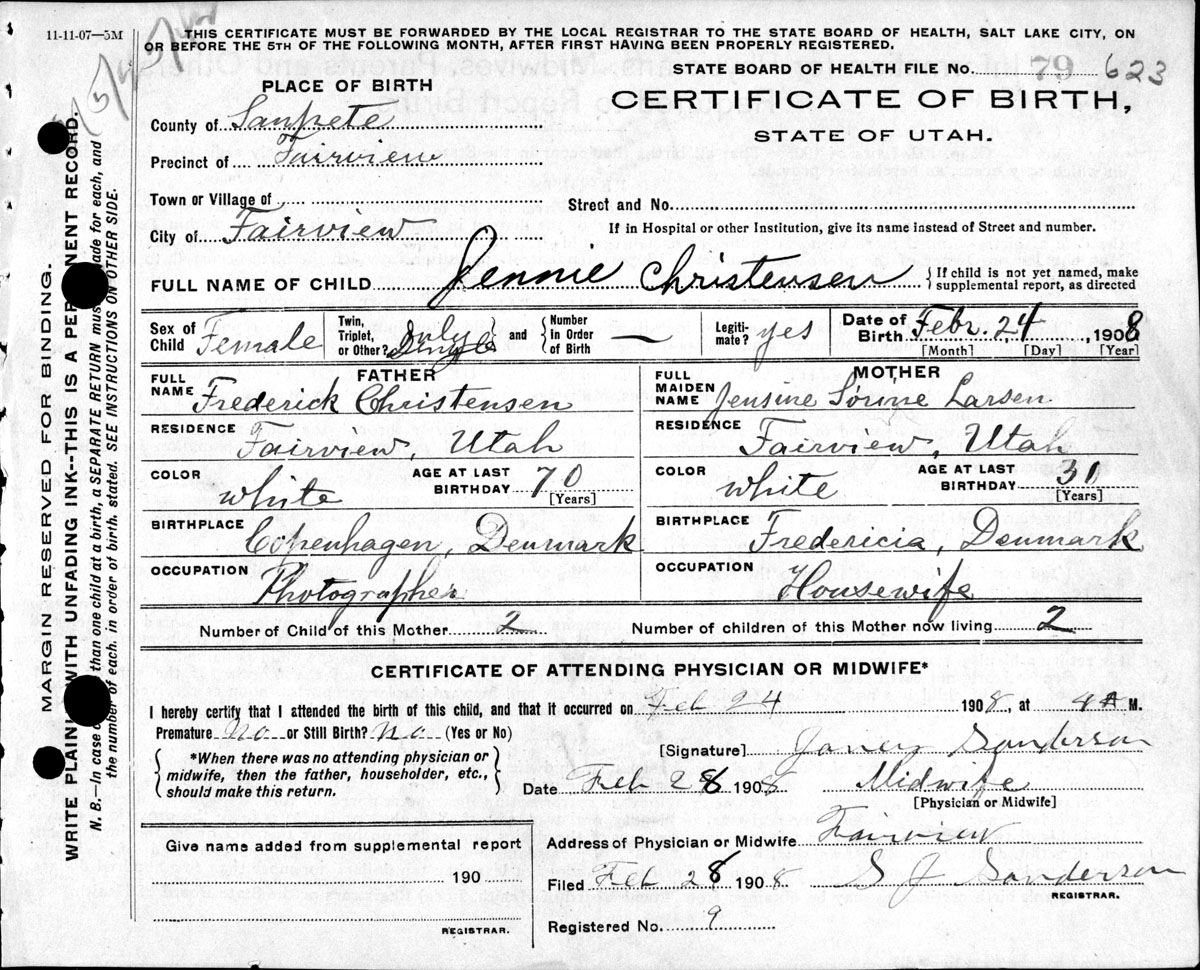 11-11-07—5M
THIS CERTIFICATE MUST BE FORWARDED BY THE LOCAL REGISTRAR TO THE STATE BOARD OF HEALTH, SALT LAKE CITY, ON
OR BEFORE THE 5TH OF THE FOLLOWING MONTH, AFTER FIRST HAVING BEEN PROPERLY REGISTERED.
STATE BOARD OF HEALTH FILE No. 79 623
PLACE OF BIRTH
CERTIFICATE OF BIRTH,
STATE OF UTAH.
County of Sanpete
Precinct of Fairview
Town or Village of
Street and No.
City of Fairview
If in Hospital or other Institution, give its name instead of Street and number.
FULL NAME OF CHILD Jennie Christensen
{ If child is not yet named, make
supplemental report, as directed
Sex of Child Female
Twin, Triplet, or Other? Single
and
Number in Order of Birth —
Legitimate? yes
Date of Birth Febr. 24, 1908
[Month] [Day] [Year]
FATHER
FULL NAME Frederick Christensen
RESIDENCE Fairview, Utah
COLOR white
AGE AT LAST BIRTHDAY 70
[Years]
BIRTHPLACE Copenhagen, Denmark
OCCUPATION Photographer
MOTHER
FULL MAIDEN NAME Jensine Sörine Larsen
RESIDENCE Fairview, Utah
COLOR white
AGE AT LAST BIRTHDAY 30
[Years]
BIRTHPLACE Fredericia, Denmark
OCCUPATION Housewife
Number of Child of this Mother 2
Number of children of this Mother now living 2
CERTIFICATE OF ATTENDING PHYSICIAN OR MIDWIFE*
I hereby certify that I attended the birth of this child, and that it occurred on Feb 24 1908, at 4 A M.
Premature No or Still Birth? No (Yes or No)
{ *When there was no attending physician or
midwife, then the father, householder, etc.,
should make this return. }
[Signature] Sanderson
Date Feb 28 1908 Midwife
[Physician or Midwife]
Give name added from supplemental report
190
REGISTRAR.
Address of Physician or Midwife Fairview
Filed Feb 28 1908 S J Sanderson
REGISTRAR.
Registered No. 9
MARGIN RESERVED FOR BINDING.
WRITE PLAIN WITH UNFADING INK--THIS IS A PER NENT RECORD.
N. B.—In case than one child at a birth, a SEPARATE RETURN mus ade for each, and
the number of each, in order of birth, stated. SEE INSTRUCTIONS ON OTHER SIDE.